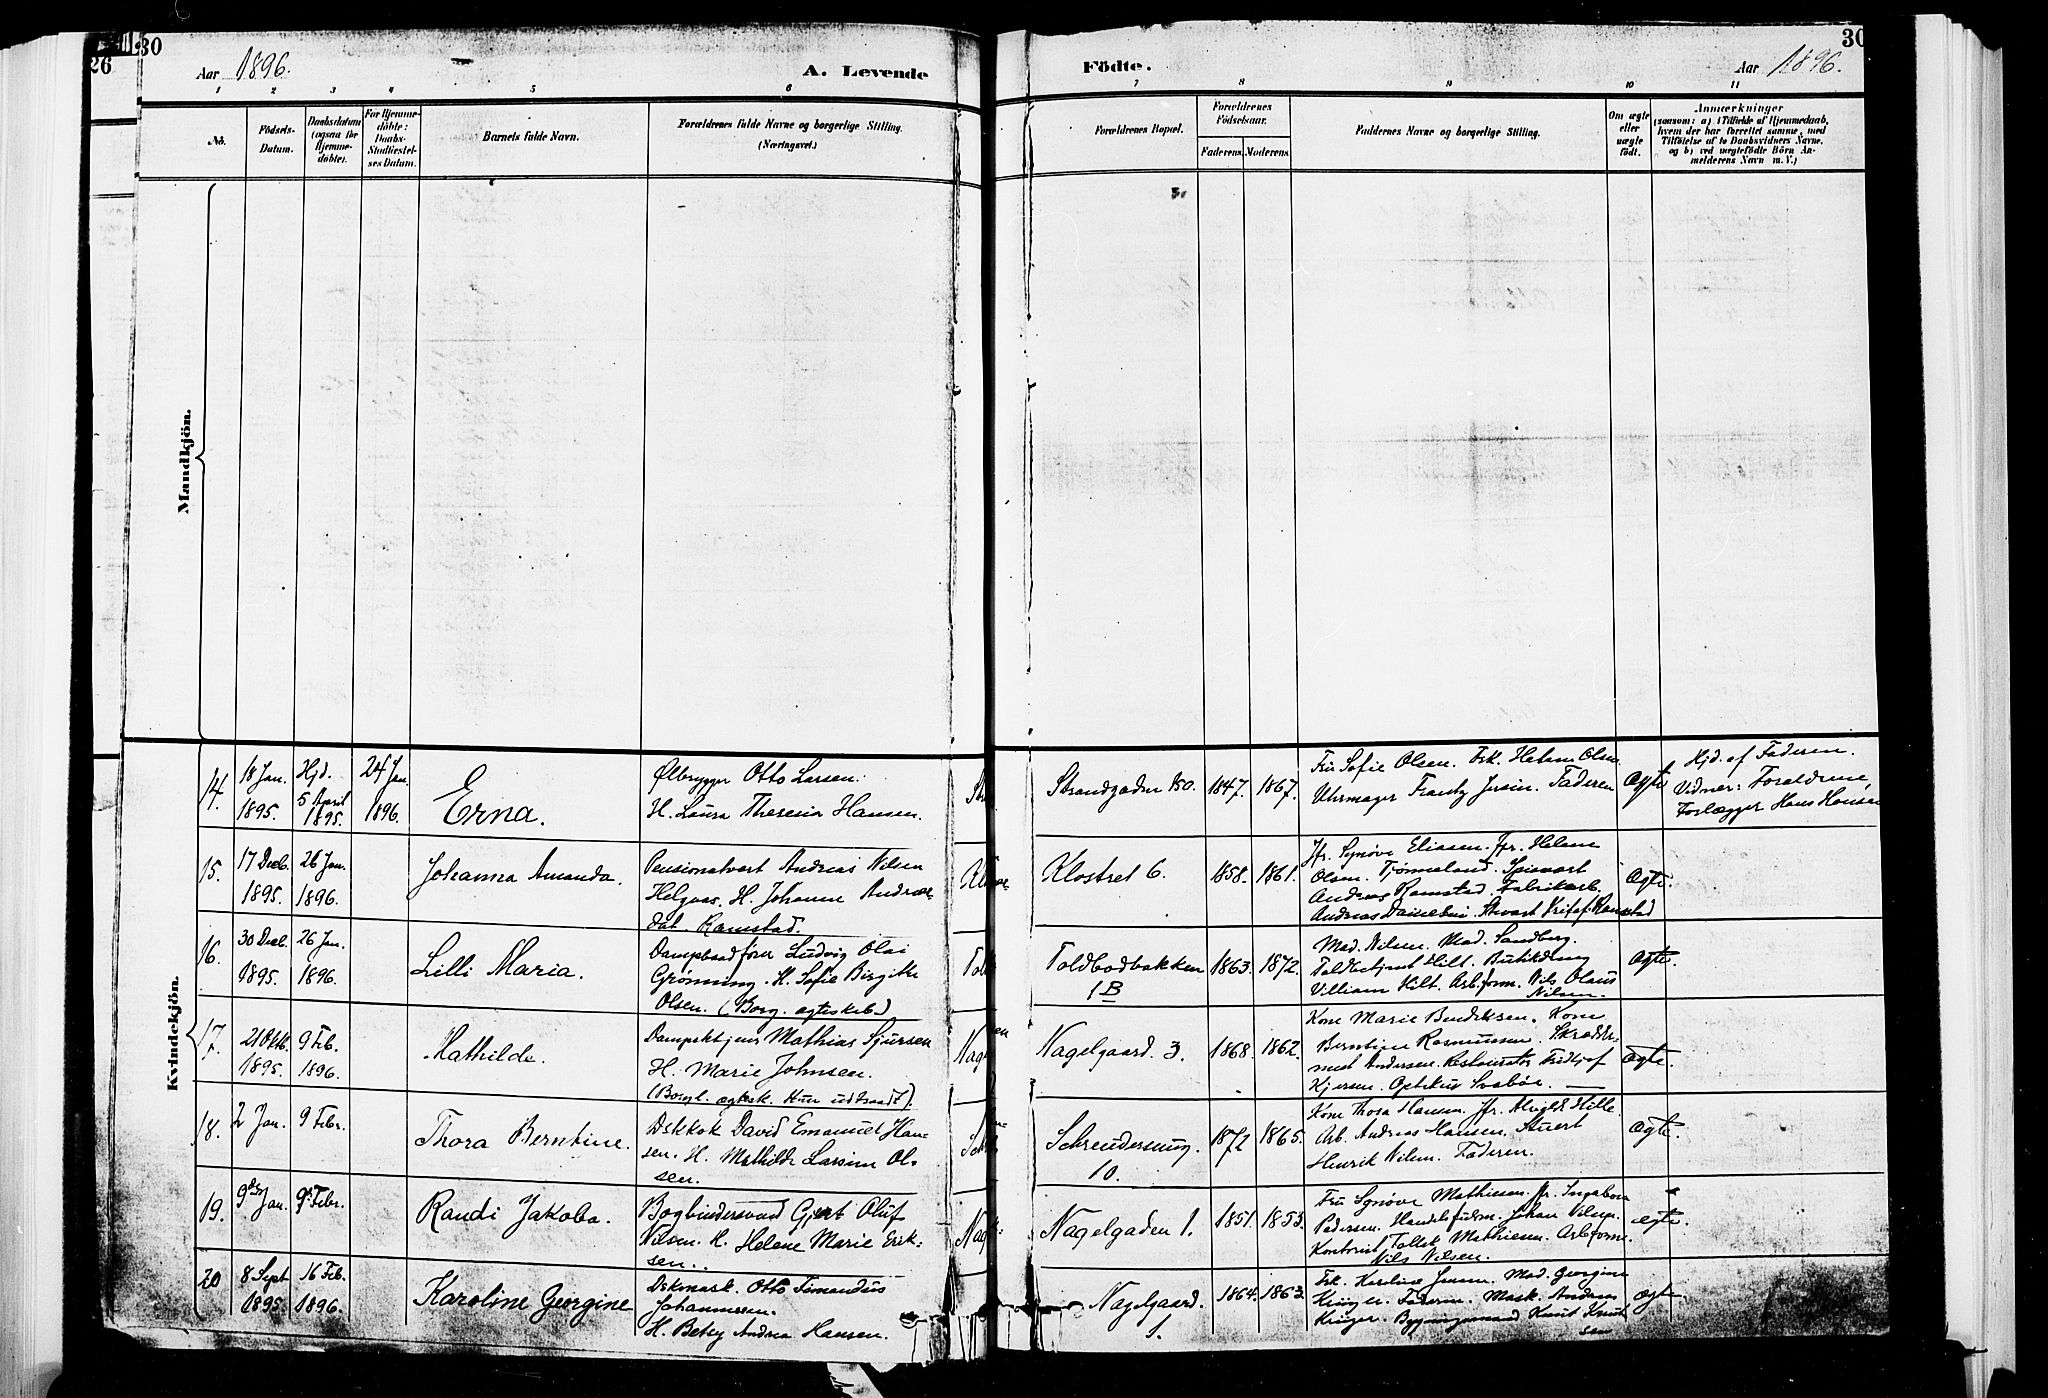 30
26
Aar 1896.
A. Levende
Födte.
Aar 1896.
30
1 2 3 4 5 6 7 8 9 10 11
No.
Födsels-
Datum.
Daabsdatum
(ogsaa for
Hjemme-
döbte).
For Hjemme-
döbte:
Daabs-
Stadfæstel-
ses Datum.
Barnets fulde Navn.
Forældrenes fulde Navne og borgerlige Stilling.
(Næringsvei.)
Forældrenes Bopæl.
Forældrenes
Födselsaar.
Faderens.
Moderens.
Faddernes Navne og borgerlige Stilling.
Om ægte
eller
uægte
födt.
Anmærkninger
(saasom: a) i Tilfælde af Hjemmedaab,
hvem der har forrettet samme, med
Tilföielse af to Daabsvidners Navne,
og b) ved uægtefödte Börn An-
melderens Navn m. V.)
Mandkjön.
Kvindekjön.
14.
18 Jan.
1895.
Hjd.
5 April
1895.
24 Jan.
1896.
Erna.
Ølbrygger Otto Larsen.
H. Laura Theresia Hansen.
Strandgaden 150.
1847.
1867.
Fru Sofie Olsen. Frk. Helene Olsen
Uhrmager Frantz Jensen. Faderen
Ægte
Hjd. af Faderen.
Vidner: Forældrene,
Forlægger Hans Hansen
15.
17 Decb.
1895.
26 Jan.
1896.
Johanna Amanda.
Pensionatvert Andreas Nilsen
Helgaas. H. Johanne Andreas-
dat. Ramstad.
Klostret 6.
1858.
1861.
Jfr. Synöve Eliasen. Jfr. Helene
Olsen. Tjönneland. Spisevært
Andreas Ramstad. Fabrikarb.
16.
30 Decb.
1895.
26 Jan.
1896.
Lilli Maria.
Dampbaadförer Ludvig Olai
Grønning. H. Sofie Birgitte
Olsen. (Borg. ægteskab)
Toldbodbakken
1 B
1863.
1872.
Mad. Nilsen. Mad. Sandberg.
Toldbetjent Hilt. Butikdreng
Villiam Hilt. Arb.form. Nils Olaus
Nilsen.
Ægte.
17.
21 Oktb.
1895.
9 Feb.
1896.
Mathilde.
Dampsktjens Mathias Sjursen
H. Marie Johnsen.
(Borgl. ægtesk. Hun udtraadt).
Nagelgaard. 3.
1868.
1862.
Kone Marie Bendiksen. Kone
Berntine Rasmussen. Skrædder-
mest Andersen. Restauratør Fridtjof
Hjersen. Optikus Svaböe.
Ægte.
18.
2 Jan.
9 Febr.
Thora Berntine.
Dskkok David Emanuel Han-
sen. H. Mathilde Larsine Ol-
sen.
Schreudersmug.
10.
1872
1865.
Kone Thora Hansen. Jfr. Alvilde Hille
Arb. Andreas Hansen. Stuert
Henrik Nilsen. Faderen.
Ægte.
19.
9de Jan.
9 Febr.
Randi Jakoba.
Bogbindersvend Gjert Oluf
Nilsen. H. Helene Marie Erik-
sen.
Nagelgaden 1.
1851.
1853.
Fru Synöve Mathiesen. Jfr. Ingeborg
Pedersen. Handelsfuldm. Johan Nilsen.
Kontorist Tollek Mathiesen. Arbform.
Nils Nilsen.
ægte.
20
8 Sept
1895.
16 Feb.
1896.
Karoline Georgine
Dskmask. Otto Timandus
Johannessen.
H. Betsy Andrea Hansen.
Nagelgaard.
1.
1864.
1863.
Frk. Karoline Jensen. Mad. Georgine
Krüger. Faderen. Mask. Andreas
Krüger. Bygningsmand Knut Knut
sen
ægte